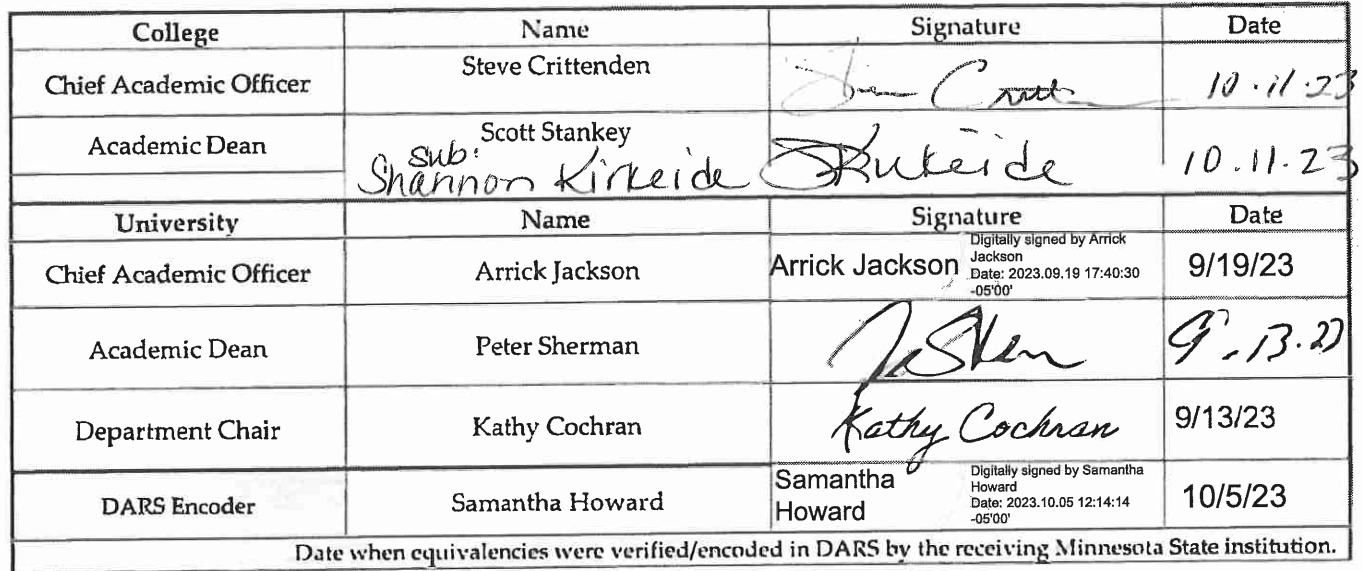 College Name Signature Date
Chief Academic Officer Steve Crittenden 10.11.23
Academic Dean Scott Stankey
sub:
Shannon Kirkeide SKirkeide 10.11.23
University Name Signature Date
Chief Academic Officer Arrick Jackson Arrick Jackson Digitally signed by Arrick Jackson Date: 2023.09.19 17:40:30 -05'00' 9/19/23
Academic Dean Peter Sherman 9.13.23
Department Chair Kathy Cochran Kathy Cochran 9/13/23
DARS Encoder Samantha Howard Samantha Howard Digitally signed by Samantha Howard Date: 2023.10.05 12:14:14 -05'00' 10/5/23
Date when equivalencies were verified/encoded in DARS by the receiving Minnesota State institution.